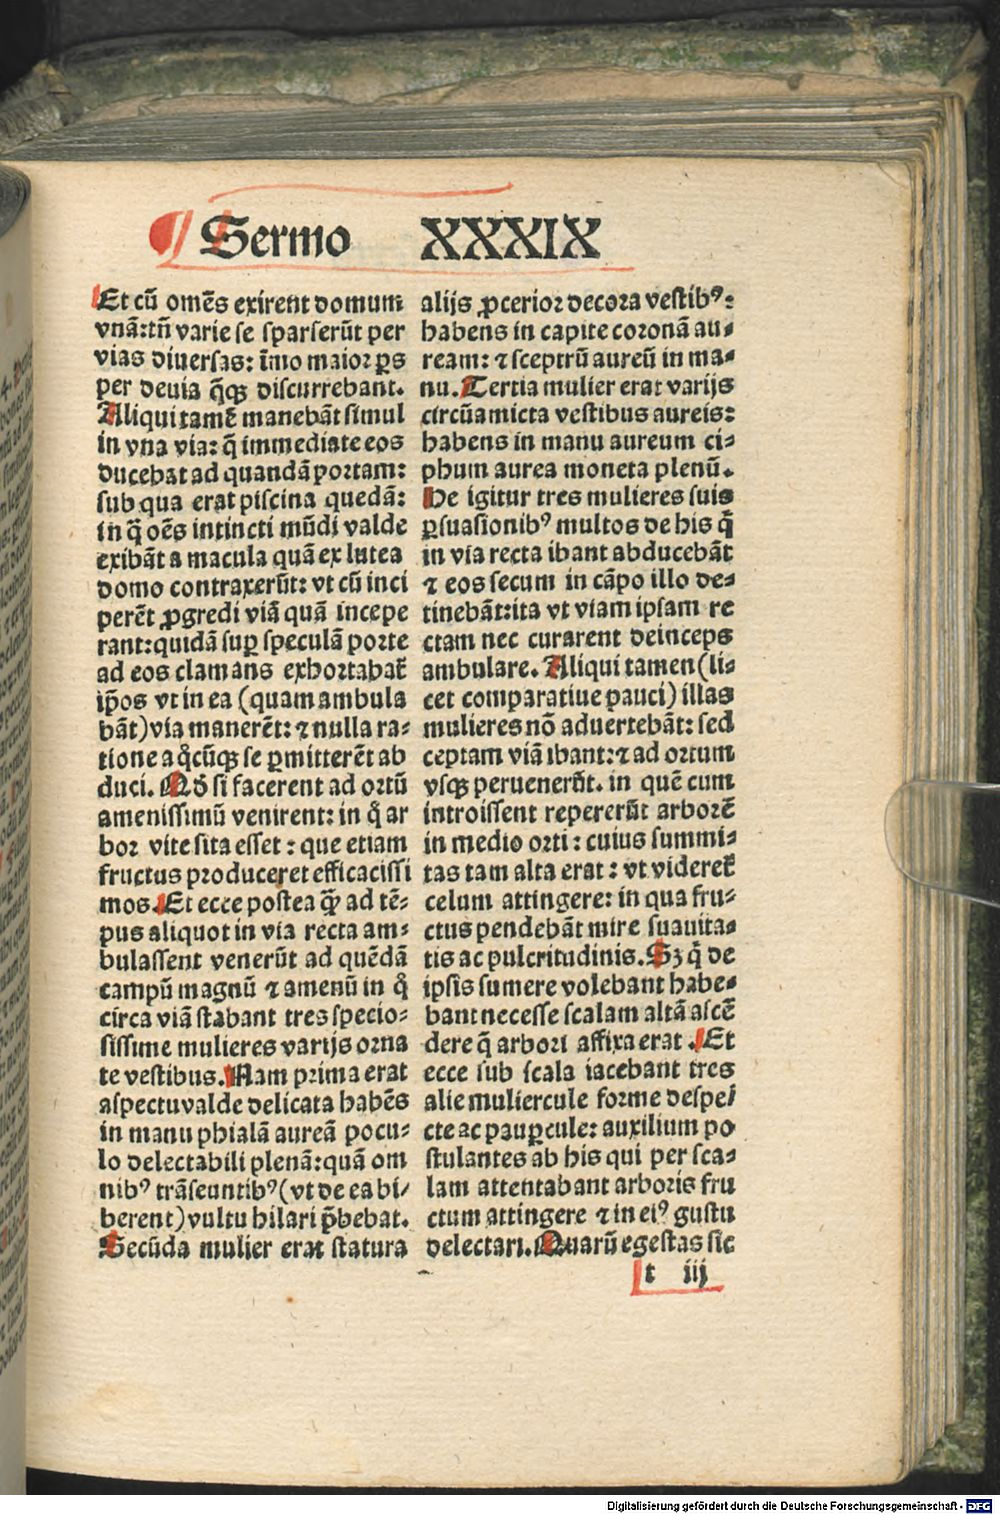 Sermo XXXIX
Et cũ omẽs exirent domum
vnã: tñ varie se sparserũt per
vias diuersas: ĩmo maior ꝑs
per deuia q̃qꝫ discurrebant.
Aliqui tamẽ manebãt simul
in vna via: q̃ immediate eos
ducebat ad quandã portam:
sub qua erat piscina quedã:
in q̃ oẽs intincti mũdi valde
exibãt a macula quã ex lutea
domo contraxerũt: vt cũ inci
perẽt ꝓgredi viã quã incepe
rant: quidã suꝑ speculã porte
ad eos clamans exhortabat᷑
ip̃os vt in ea (quam ambula
bãt) via manerẽt: ⁊ nulla ra⸗
tione a qͥcũqꝫ se ꝑmitterẽt ab
duci. Qđ si facerent ad ortũ
amenissimũ venirent: in qͦ ar
bor vite sita esset: que etiam
fructus produceret efficacissi
mos. Et ecce postea qꝙ̃ ad tẽ⸗
pus aliquot in via recta am⸗
bulassent venerũt ad quẽdã
campũ magnũ ⁊ amenũ in qͦ
circa viã stabant tres specio⸗
sissime mulieres varijs orna
te vestibus. Nam prima erat
aspectu valde delicata habẽs
in manu phialã aureã pocu⸗
lo delectabili plenã: quã om
nibꝰ trãseuntibꝰ (vt de ea bi/
berent) vultu hilari p̃bebat.
Secũda mulier erat statura
alijs ꝓcerior decora vestibꝰ:
habens in capite coronã au⸗
ream: ⁊ sceptrũ aureũ in ma⸗
nu. Tertia mulier erat varijs
circũamicta vestibus aureis:
habens in manu aureum ci⸗
phum aurea moneta plenũ.
He igitur tres mulieres suis
ꝑsuasionibꝰ multos de his q̃
in via recta ibant abducebãt
⁊ eos secum in cãpo illo de⸗
tinebãt: ita vt viam ipsam re
ctam nec curarent deinceps
ambulare. Aliqui tamen (li⸗
cet comparatiue pauci) illas
mulieres nõ aduertebãt: sed
ceptam viã ibant: ⁊ ad ortum
vsqꝫ peruenerũt. in quẽ cum
introissent repererũt arborẽ
in medio orti: cuius summi⸗
tas tam alta erat: vt videret᷑
celum attingere: in qua fru⸗
ctus pendebãt mire suauita⸗
tis ac pulcritudinis. Sꝫ q̃ de
ipsis sumere volebant habe⸗
bant necesse scalam altã ascẽ
dere q̃ arbori affixa erat. Et
ecce sub scala iacebant tres
alie muliercule forme despe/
cte ac pauꝑcule: auxilium po
stulantes ab his qui per sca⸗
lam attentabant arboris fru
ctum attingere ⁊ in eiꝰ gustu
delectari. Quarũ egestas sic
t iij
Digitalisierung gefördert durch die Deutsche Forschungsgemeinschaft - DFG